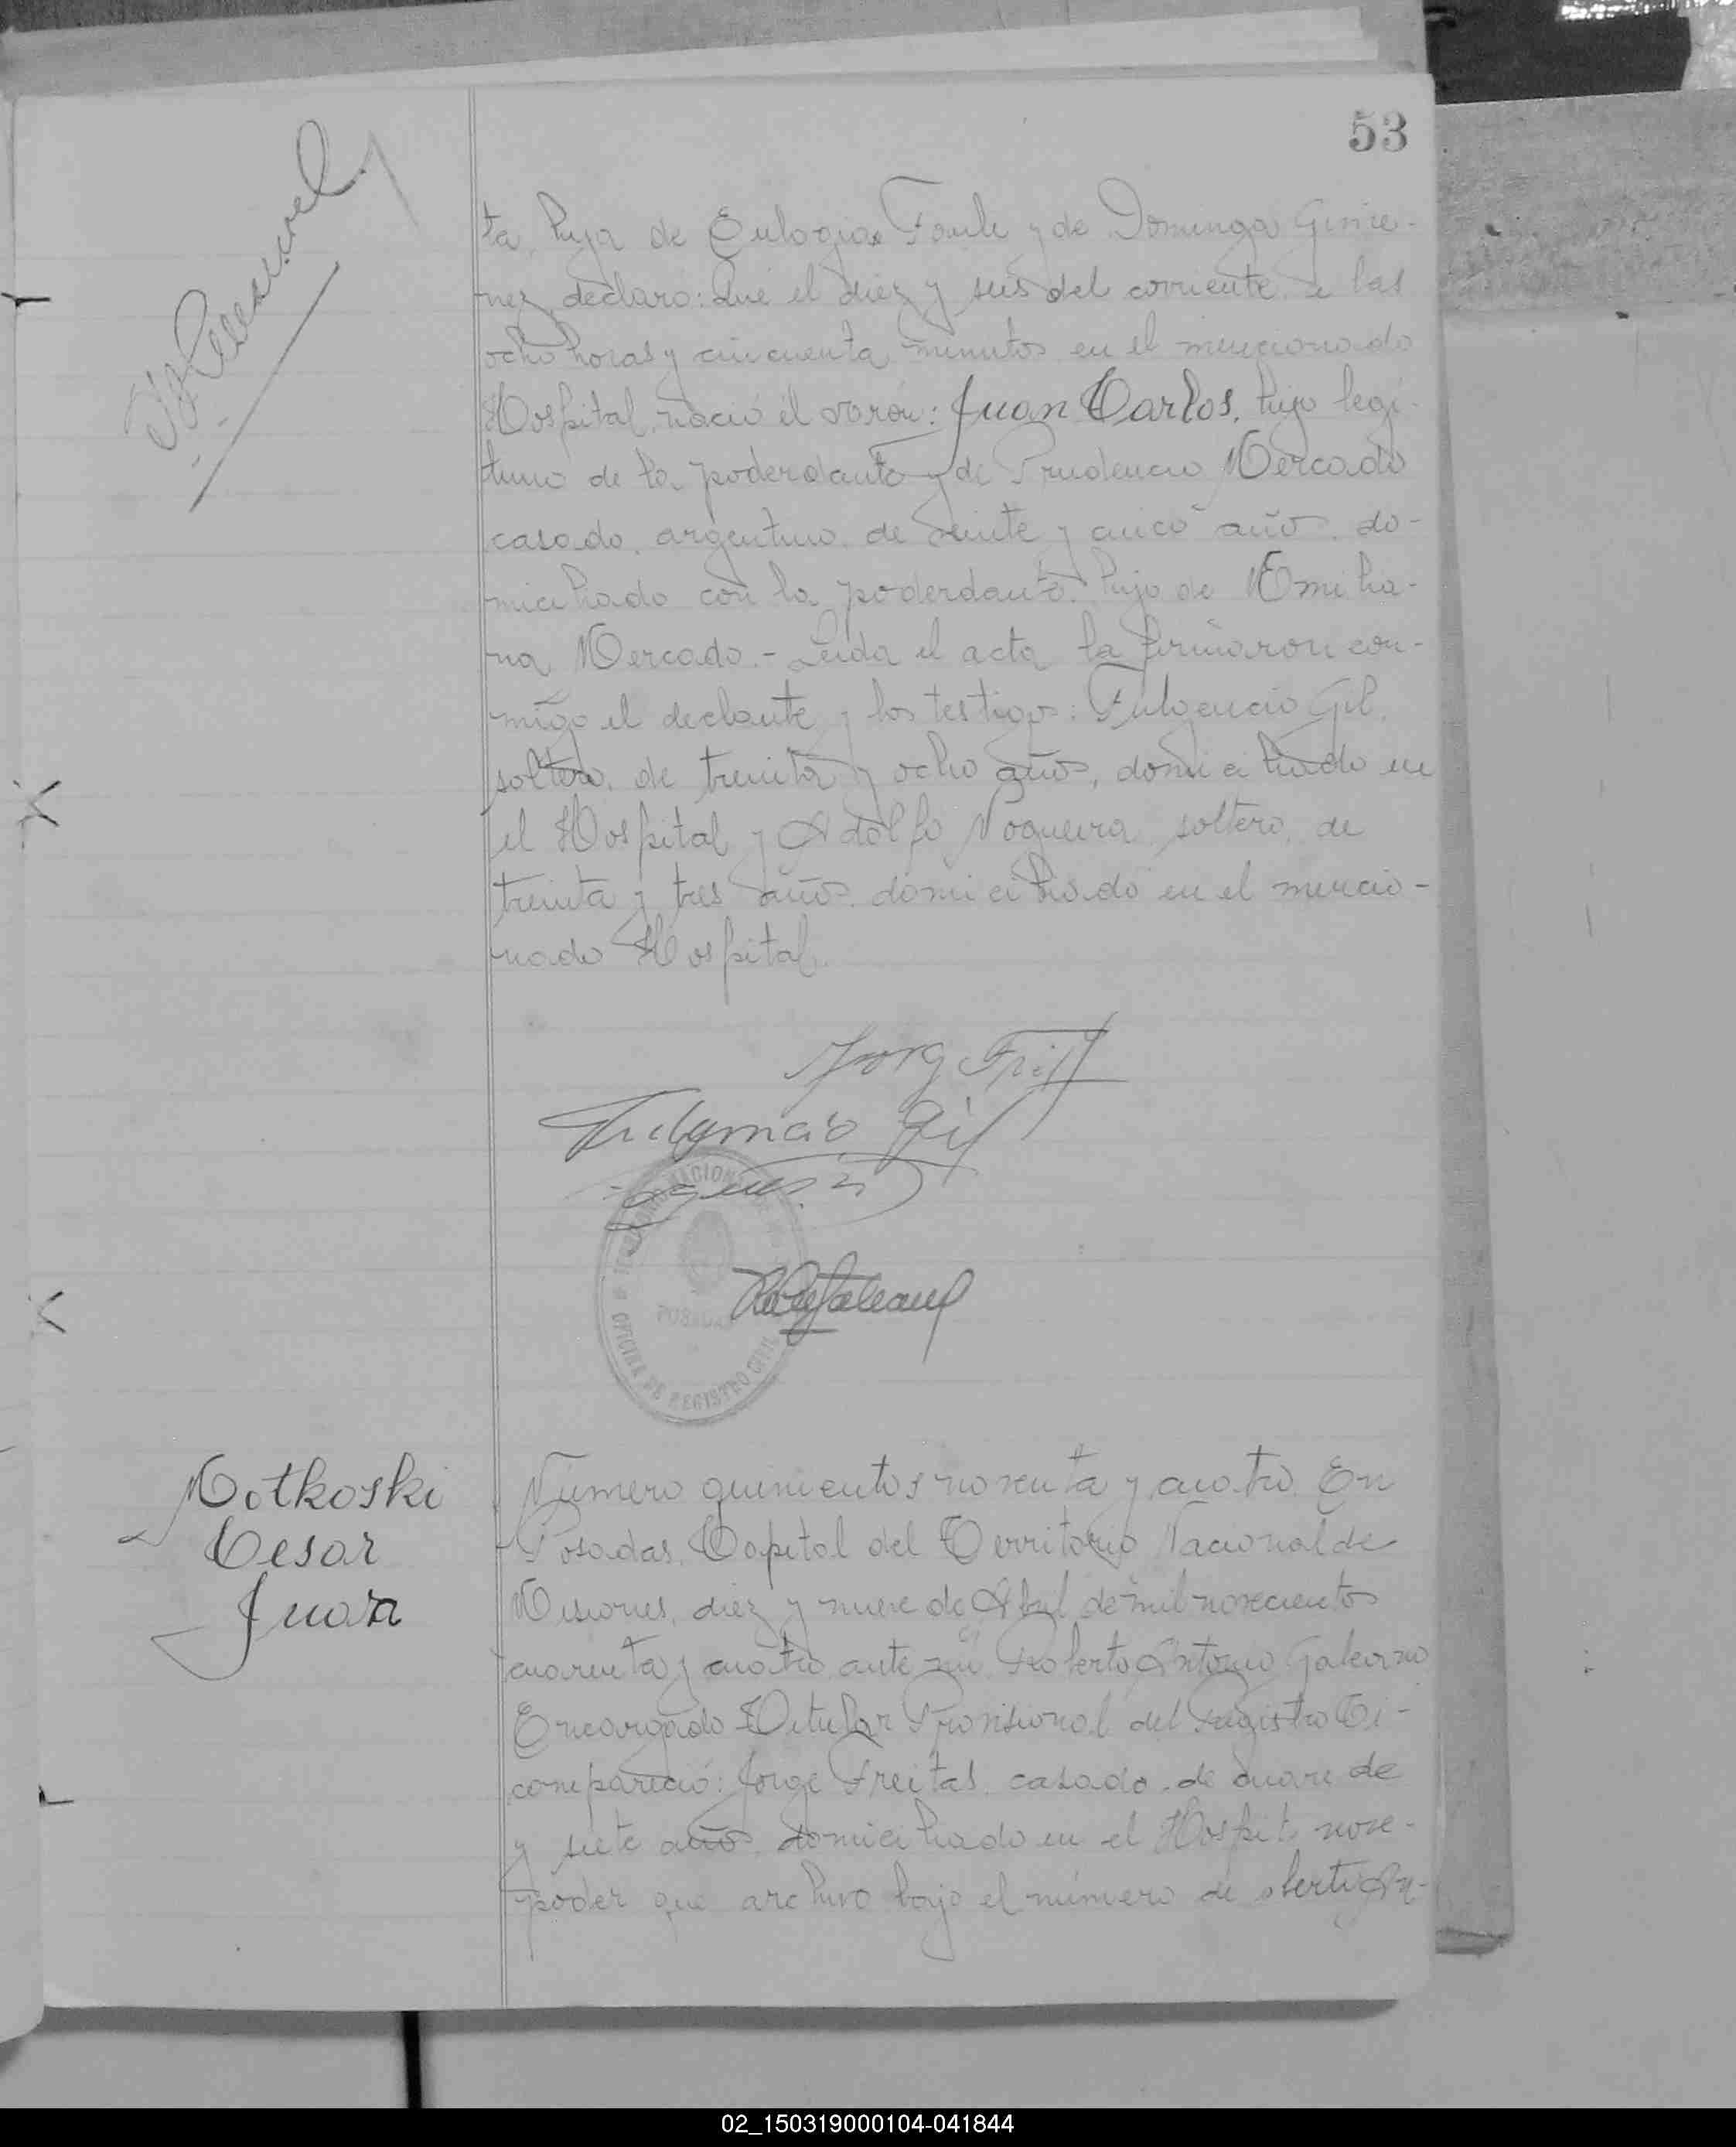 53
ta, hija de Eulogia Foule y de Domingo Gime-
nez, declaró: Que el diez y seis del corriente a las
ocho horas y cincuenta minutos en el mencionado
Hospital, nació el varón: Juan Carlos, hijo legí-
timo de la poderdante y de Prudencio Mercado
casado, argentino, de veinte y cinco años, do-
miciliado con la poderdante, hijo de Emilia-
na Mercado.- Leida el acta la firmaron con-
migo el declante y los testigos: Fulgencio Gil,
soltero, de treinta y ocho años, domiciliado en
el Hospital y Adolfo Nogueira, soltero, de
treinta y tres años, domiciliado en el mencio-
nado Hospital.
Fulgencio Gil
POSADAS
OFICINA DE REGISTRO CIVIL
Motkoski
Cesar
Juan
Número quinientos noventa y cuatro. En
Posadas, Capital del Territorio Nacional de
Misiones, diez y nueve de Abril de mil novecientos
cuarenta y cuatro ante mí Roberto Antonio Galeano
Encargado Titular Provisional del Registro Ci-
compareció: Jorge Freitas, casado, de cuare de
y siete años, domiciliado en el Hospit nove-
poder que archivo bajo el número de oberto An-
02_150319000104-041844